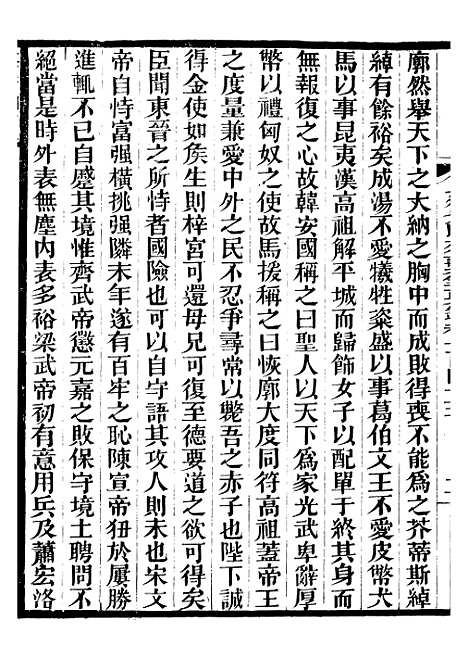 廓然舉天下之大納之胸中而成敗得喪不能爲之芥蔕斯綽
綽有餘裕矣成湯不愛犧牲粢盛以事葛伯文王不愛皮幣犬
馬以事昆夷漢高祖解平城而歸飾女子以配單于終其身而
無報復之心故韓安國稱之曰聖人以天下爲家光武卑辭厚
幣以禮匈奴之使故馬援稱之曰恢廓大度同符高祖蓋帝王
之度量兼愛中外之民不忍爭尋常以斃吾之赤子也陛下誠
得金使如矦生則梓宮可還母兄可復至德要道之欲可得矣
臣聞東晉之所恃者國險也可以自守語其攻人則未也宋文
帝自恃富强橫挑强隣末年遂有百牢之恥陳宣帝狃於屢勝
進輒不已自蹙其境惟齊武帝懲元嘉之敗保守境土聘問不
絕當是時外表無塵内表多裕梁武帝初有意用兵及蕭宏洛